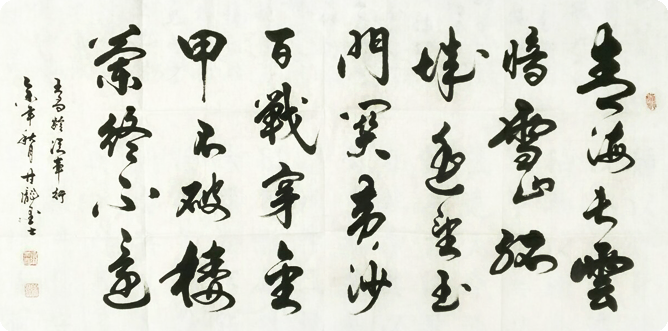 青海長雲
暗雪山孤
城遥望玉
門關黄沙
百戰穿金
甲不破樓
蘭終不還
王昌齡從軍行
年秋月